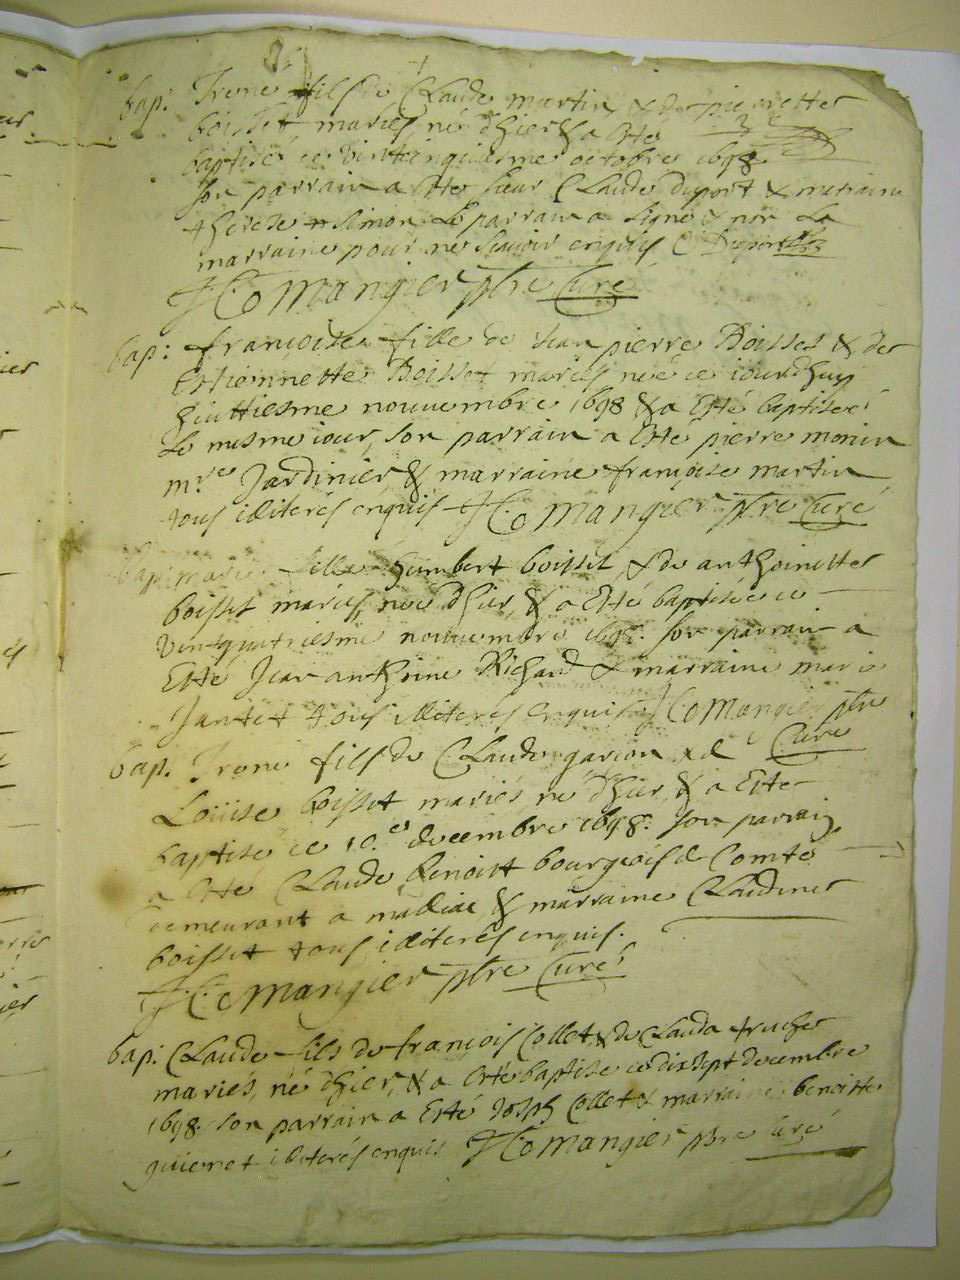 bap: Irené fils de Claude martin & de pierrette
boisset mariés né d'hier & a esté
baptisé ce vintcinquiesme octobre 1698
son parrain a esté sieur Claude duport & maraine
therese simon le parrain a signé & non la
marraine pour ne scavoir enquise C Duport
mangier ptre Curé
bap: francoise fille de Jean pierre Boisset & de
Estiennette Boisset mariés née ce iourdhuy
huittiesme nouvembre 1698 & a esté baptisée
le mesme iour, son parrain a esté pierre monin
mre Jardinier & marraine françoise martin
tous illiterés enquis mangier ptre Curé
bap: marie fille humbert boisset & de anthoinette
boisset mariés née d'hier, & a esté baptisée ce
vintquatriesme nouvembre 1698. son parrain a
Esté Jean anthoine Richard & marraine marie
Jantet tous illiterés enquis mangier ptre
Curé
bap. Irené fils de Claude garion & de
Louise boisset mariés né d'hier, & a esté
baptisé ce 10e decembre 1698. son parrain
a esté Claude benoist bourgeois de Comte
demeurant a & marraine Claudine
boisset tous illiterés enquis.
mangier ptre Curé
bap: Claude fils de françois Collet & de Clauda truchet
mariés, né d'hier, & a esté baptisé ce dixsept decembre
1698. son parrain a Esté Joseph Collet & marraine benoiste
guienet illiterés enquis mangier ptre Curé